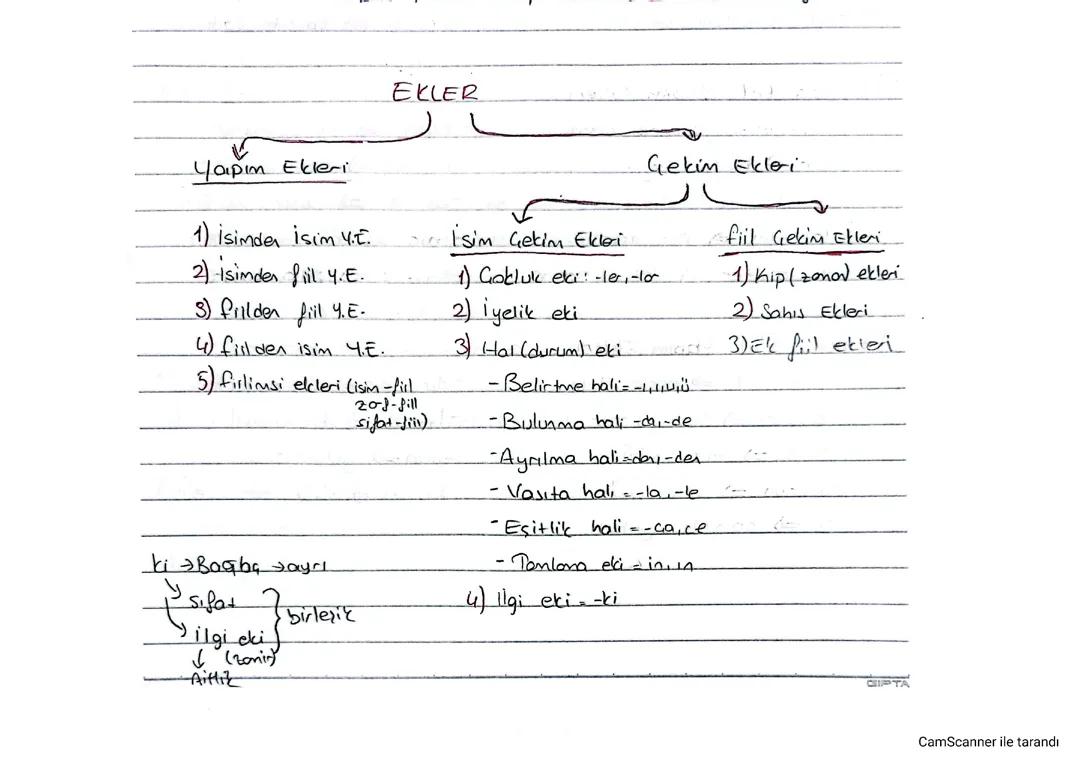 EKLER
Yapım Ekleri
Çekim Ekleri
1) İsimden İsim Y.E.
2) İsimden fiil Y.E.
3) fiilden fiil Y.E.
4) fiilden isim Y.E.
5) fiilimsi ekleri (isim-fiil
zarf-fiil
sıfat-fiil)
İsim Çekim Ekleri
1) Çokluk eki: -ler, -lar
2) İyelik eki
3) Hal (durum) eki
- Belirtme hali = -ı,i,u,ü
- Bulunma hali -da, -de
- Ayrılma hali = -dan, -den
- Vasıta hali = -la, -le
- Eşitlik hali = -ca, ce
- Tamlama eki = in, ın
4) İlgi eki = -ki
fiil Çekim Ekleri
1) Kip (zaman) ekleri
2) Şahıs Ekleri
3) Ek fiil ekleri
ki → Bağlaç → ayrı
sıfat
ilgi eki
(zamir)
birleşik
Aitlik
GIPTA
CamScanner ile tarandı